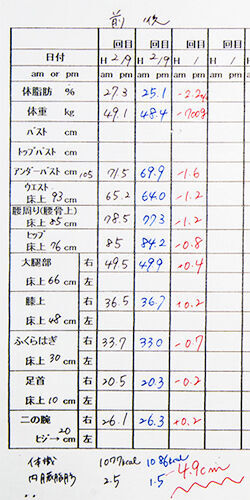 前 後
回目 回目 回目
日付 H 2/9 H 2/9 H /
am or pm am pm am pm am pm
体脂肪 % 27.3 25.1 -2.2%
体重 kg 49.1 48.4 -700g
バスト cm
トップバスト cm
アンダーバスト cm 105 71.5 69.9 -1.6
ウエスト 床上 93 cm 65.2 64.0 -1.2
腰周り(腰骨上) 床上 85 cm 78.5 77.3 -1.2
ヒップ 床上 76 cm 85 84.2 -0.8
大腿部 右 49.5 49.9 +0.4
床上 66 cm 左
膝上 右 36.5 36.7 +0.2
床上 48 cm 左
ふくらはぎ 右 33.7 33.0 -0.7
床上 30 cm 左
足首 右 20.5 20.3 -0.2
床上 10 cm 左
二の腕 右 26.1 26.3 +0.2
ヒジ→ 20 cm 左
体幟 1077kcal 1086kcal -4.9cm
内臓脂肪 2.5 1.5